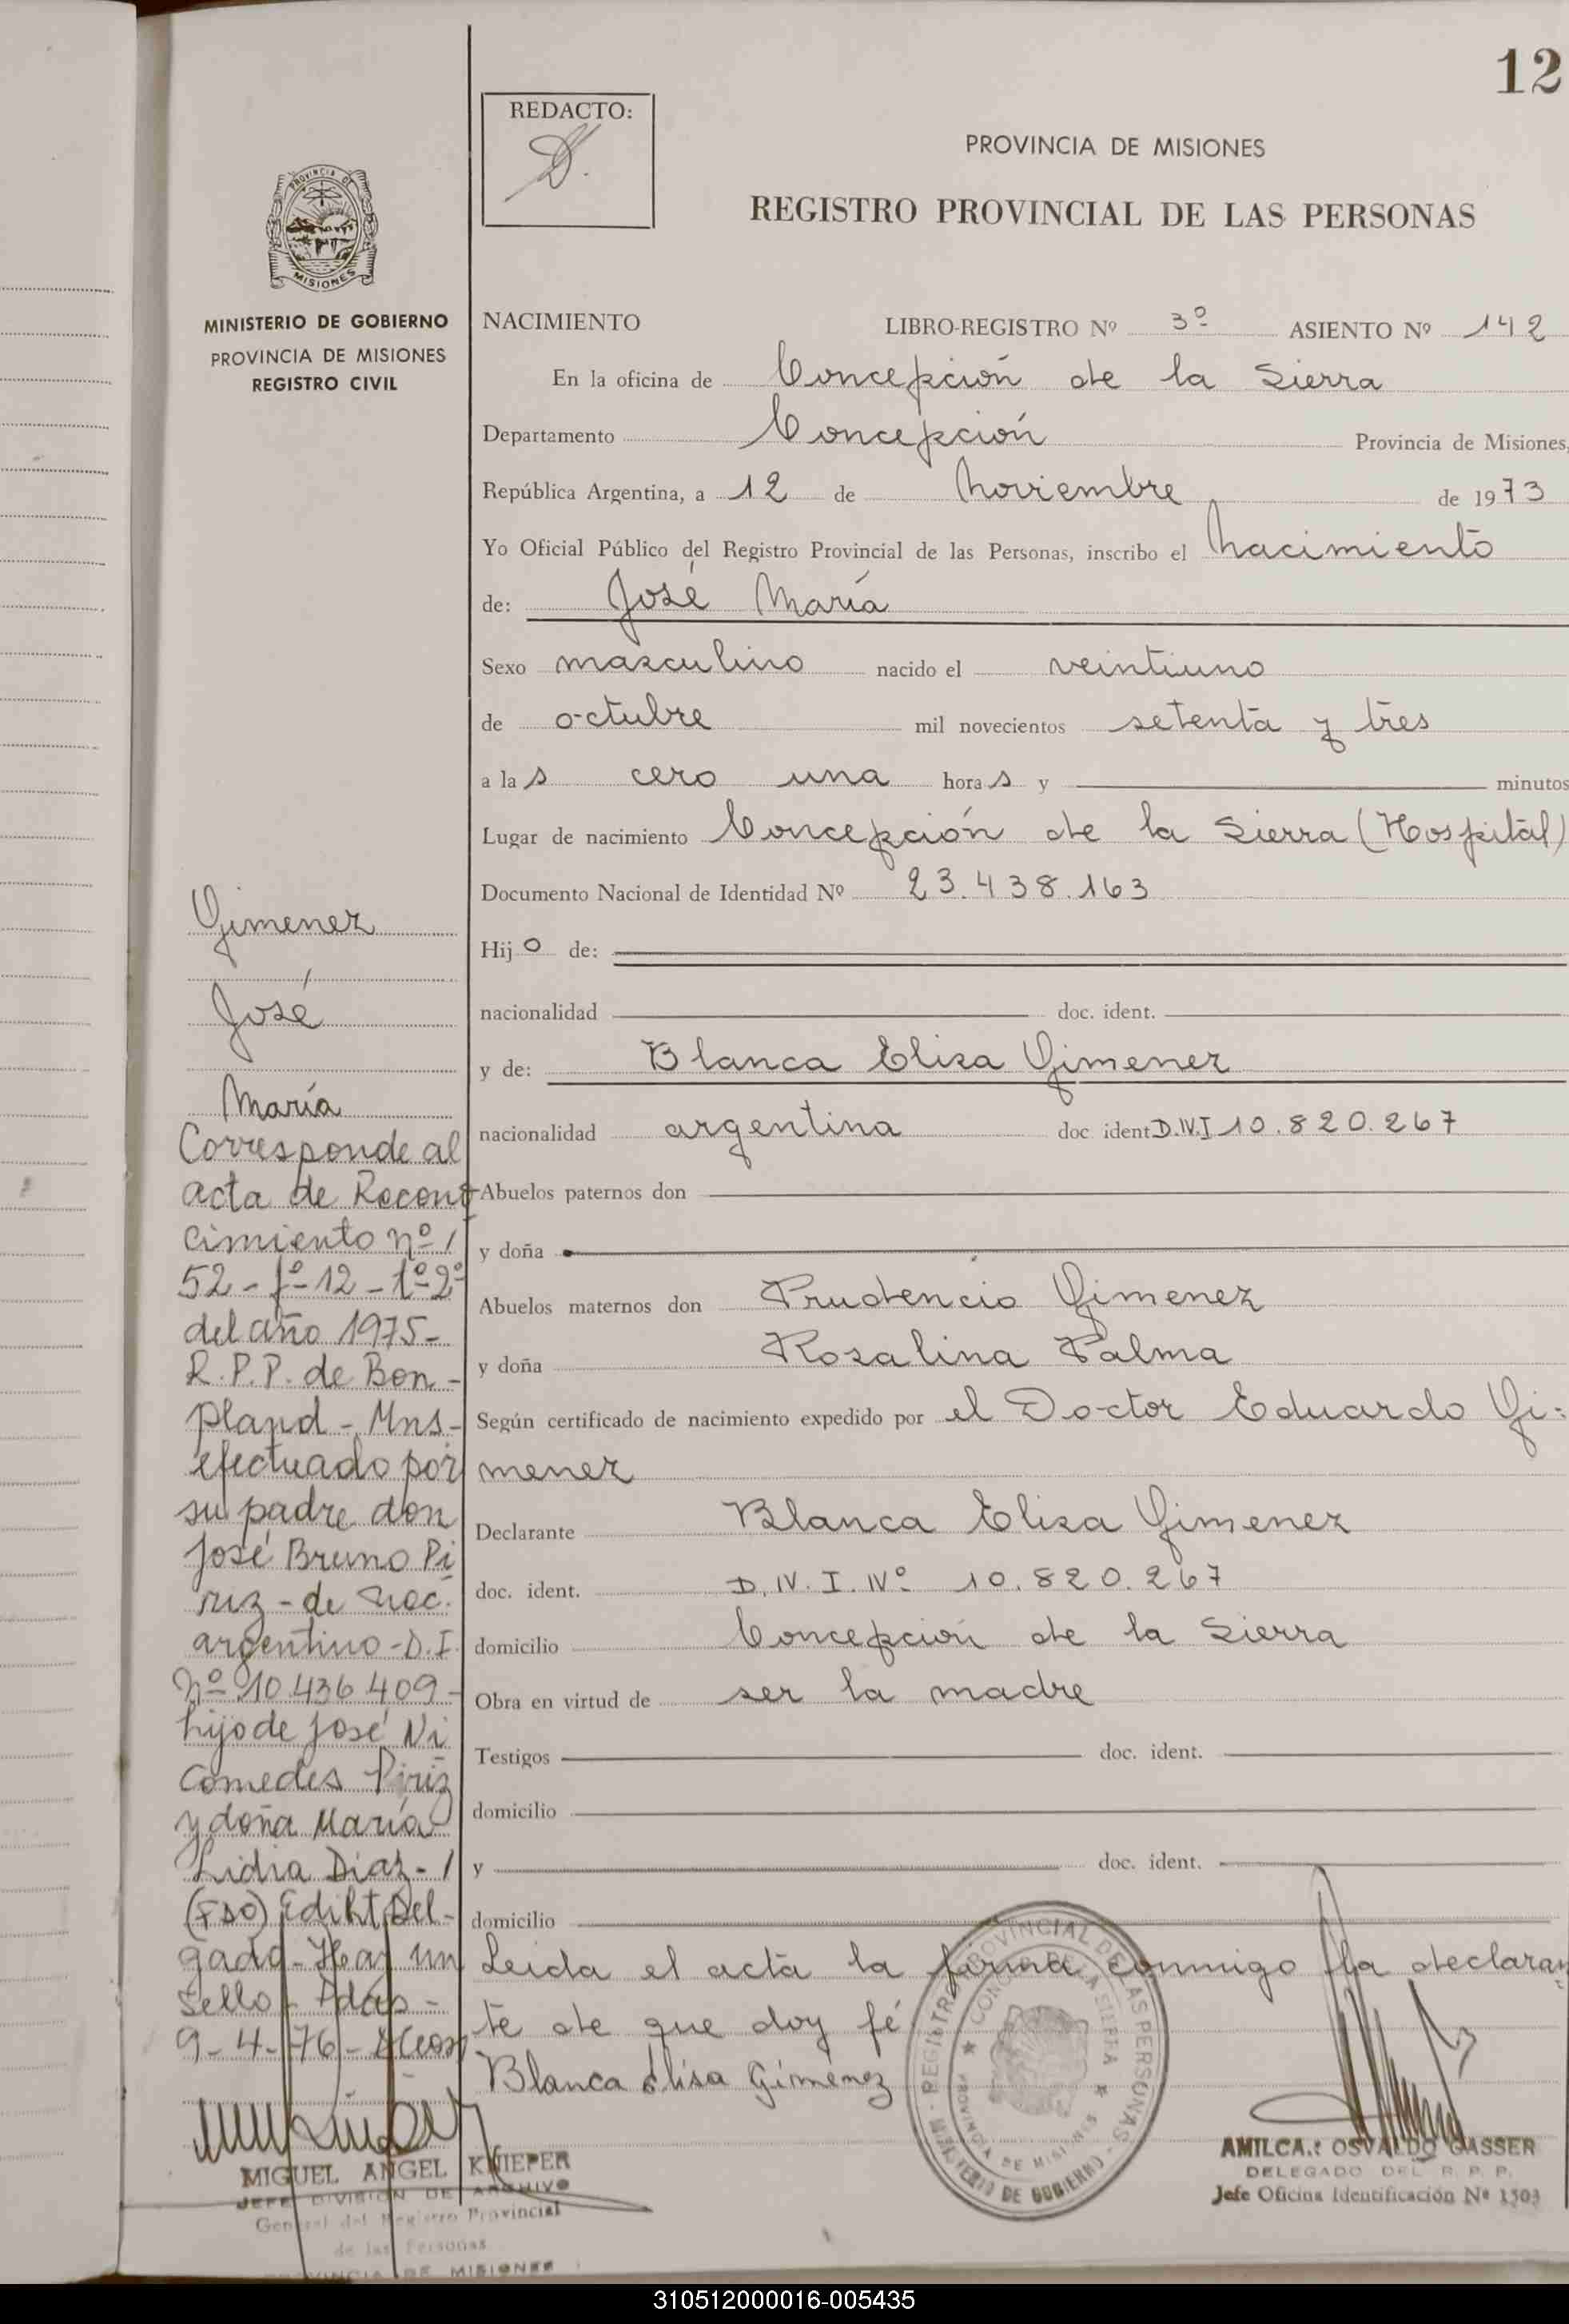 12
REDACTO:
PROVINCIA DE MISIONES
REGISTRO PROVINCIAL DE LAS PERSONAS
PROVINCIA DE
MISIONES
MINISTERIO DE GOBIERNO
PROVINCIA DE MISIONES
REGISTRO CIVIL
NACIMIENTO LIBRO-REGISTRO Nº 3º ASIENTO Nº 142
En la oficina de Concepción de la Sierra
Departamento Concepción Provincia de Misiones,
República Argentina, a 12 de Noviembre de 1973
Yo Oficial Público del Registro Provincial de las Personas, inscribo el Nacimiento
de: José María
Sexo masculino nacido el veintiuno
de octubre mil novecientos setenta y tres
a las cero una horas y minutos
Lugar de nacimiento Concepción de la Sierra (Hospital)
Documento Nacional de Identidad Nº 23.438.163
Hijo de:
nacionalidad doc. ident.
y de: Blanca Elisa Gimenez
nacionalidad argentina doc ident D.N.I 10.820.267
Abuelos paternos don
y doña
Abuelos maternos don Prudencio Gimenez
y doña Rosalina Palma
Según certificado de nacimiento expedido por el Doctor Eduardo Gi-
menez
Declarante Blanca Elisa Gimenez
doc. ident. D.N.I.Nº 10.820.267
domicilio Concepción de la Sierra
Obra en virtud de ser la madre
Testigos doc. ident.
domicilio
y doc. ident.
domicilio
Leida el acta la firma conmigo la declaran
te de que doy fé
Blanca Elisa Giménez
Gimenez
José
María
Corresponde al
acta de Recono
cimiento nº
52 - fº 12 - tº 2º
del año 1975 -
R.P.P. de Bon-
pland - Mns -
efectuado por
su padre don
José Bruno Pi
riz - de nac.
argentino - D.I.
Nº 10.436.409 -
hijo de José Ni
comedes Piriz
y doña María
Lidia Diaz -
(FDO) Ediht Del-
gado - Hay un
sello - Pdas -
9 - 4 - 76 -
MIGUEL ANGEL KNIEPER
JEFE DIVISION DE ARCHIVO
General del Registro Provincial
de las Personas
PROVINCIA DE MISIONES
REGISTRO PROVINCIAL DE LAS PERSONAS
MINISTERIO DE GOBIERNO
CONCEPCION DE LA SIERRA
PROVINCIA DE MISIONES
AMILCAR OSVALDO GASSER
DELEGADO DEL R. P. P.
Jefe Oficina Identificación Nº 1503
310512000016-005435